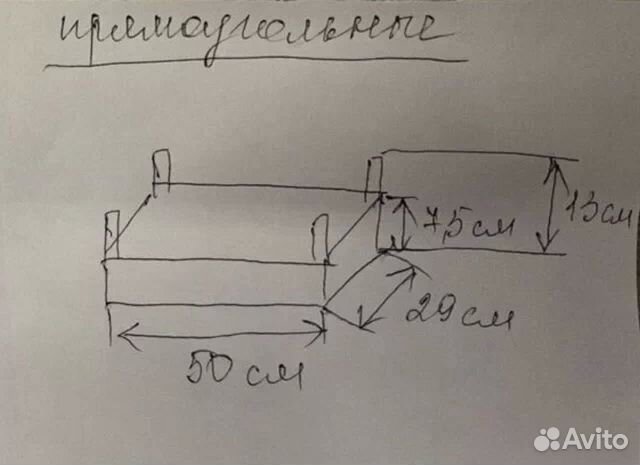 прямоугольные
13 см
7,5 см
29 см
50 см
Avito